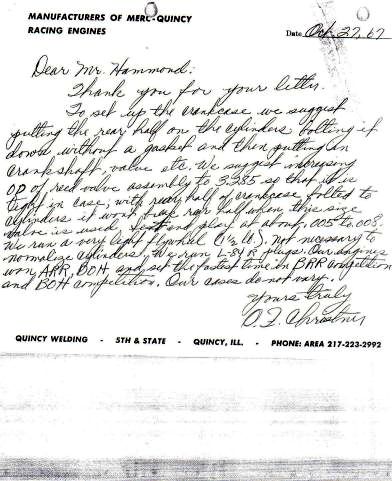 MANUFACTURERS OF MERC-QUINCY
RACING ENGINES
Date Oct. 27, 67
Dear Mr. Hammond:
Thank you for your letter.
To set up the crankcase we suggest
putting the rear half on the cylinders bolting it
down without a gasket and then putting in
crankshaft, valve etc. We suggest increasing
OD of reed valve assembly to 3.285 so that it is
tight in case, with rear half of crankcase bolted to
cylinders it won't rear half when this size
valve is used. end play at about .005 to .008.
We run a very light flywheel (1½ lb.). Not necessary to
normalize cylinders. We run L-84 R plugs. Our engines
won ARR, BOH, and set the fastest time in BRR competition
and BOH competition. Our cases do not vary.
Yours truly
O. F. Christner
QUINCY WELDING - 5TH & STATE - QUINCY, ILL. - PHONE: AREA 217-223-2992